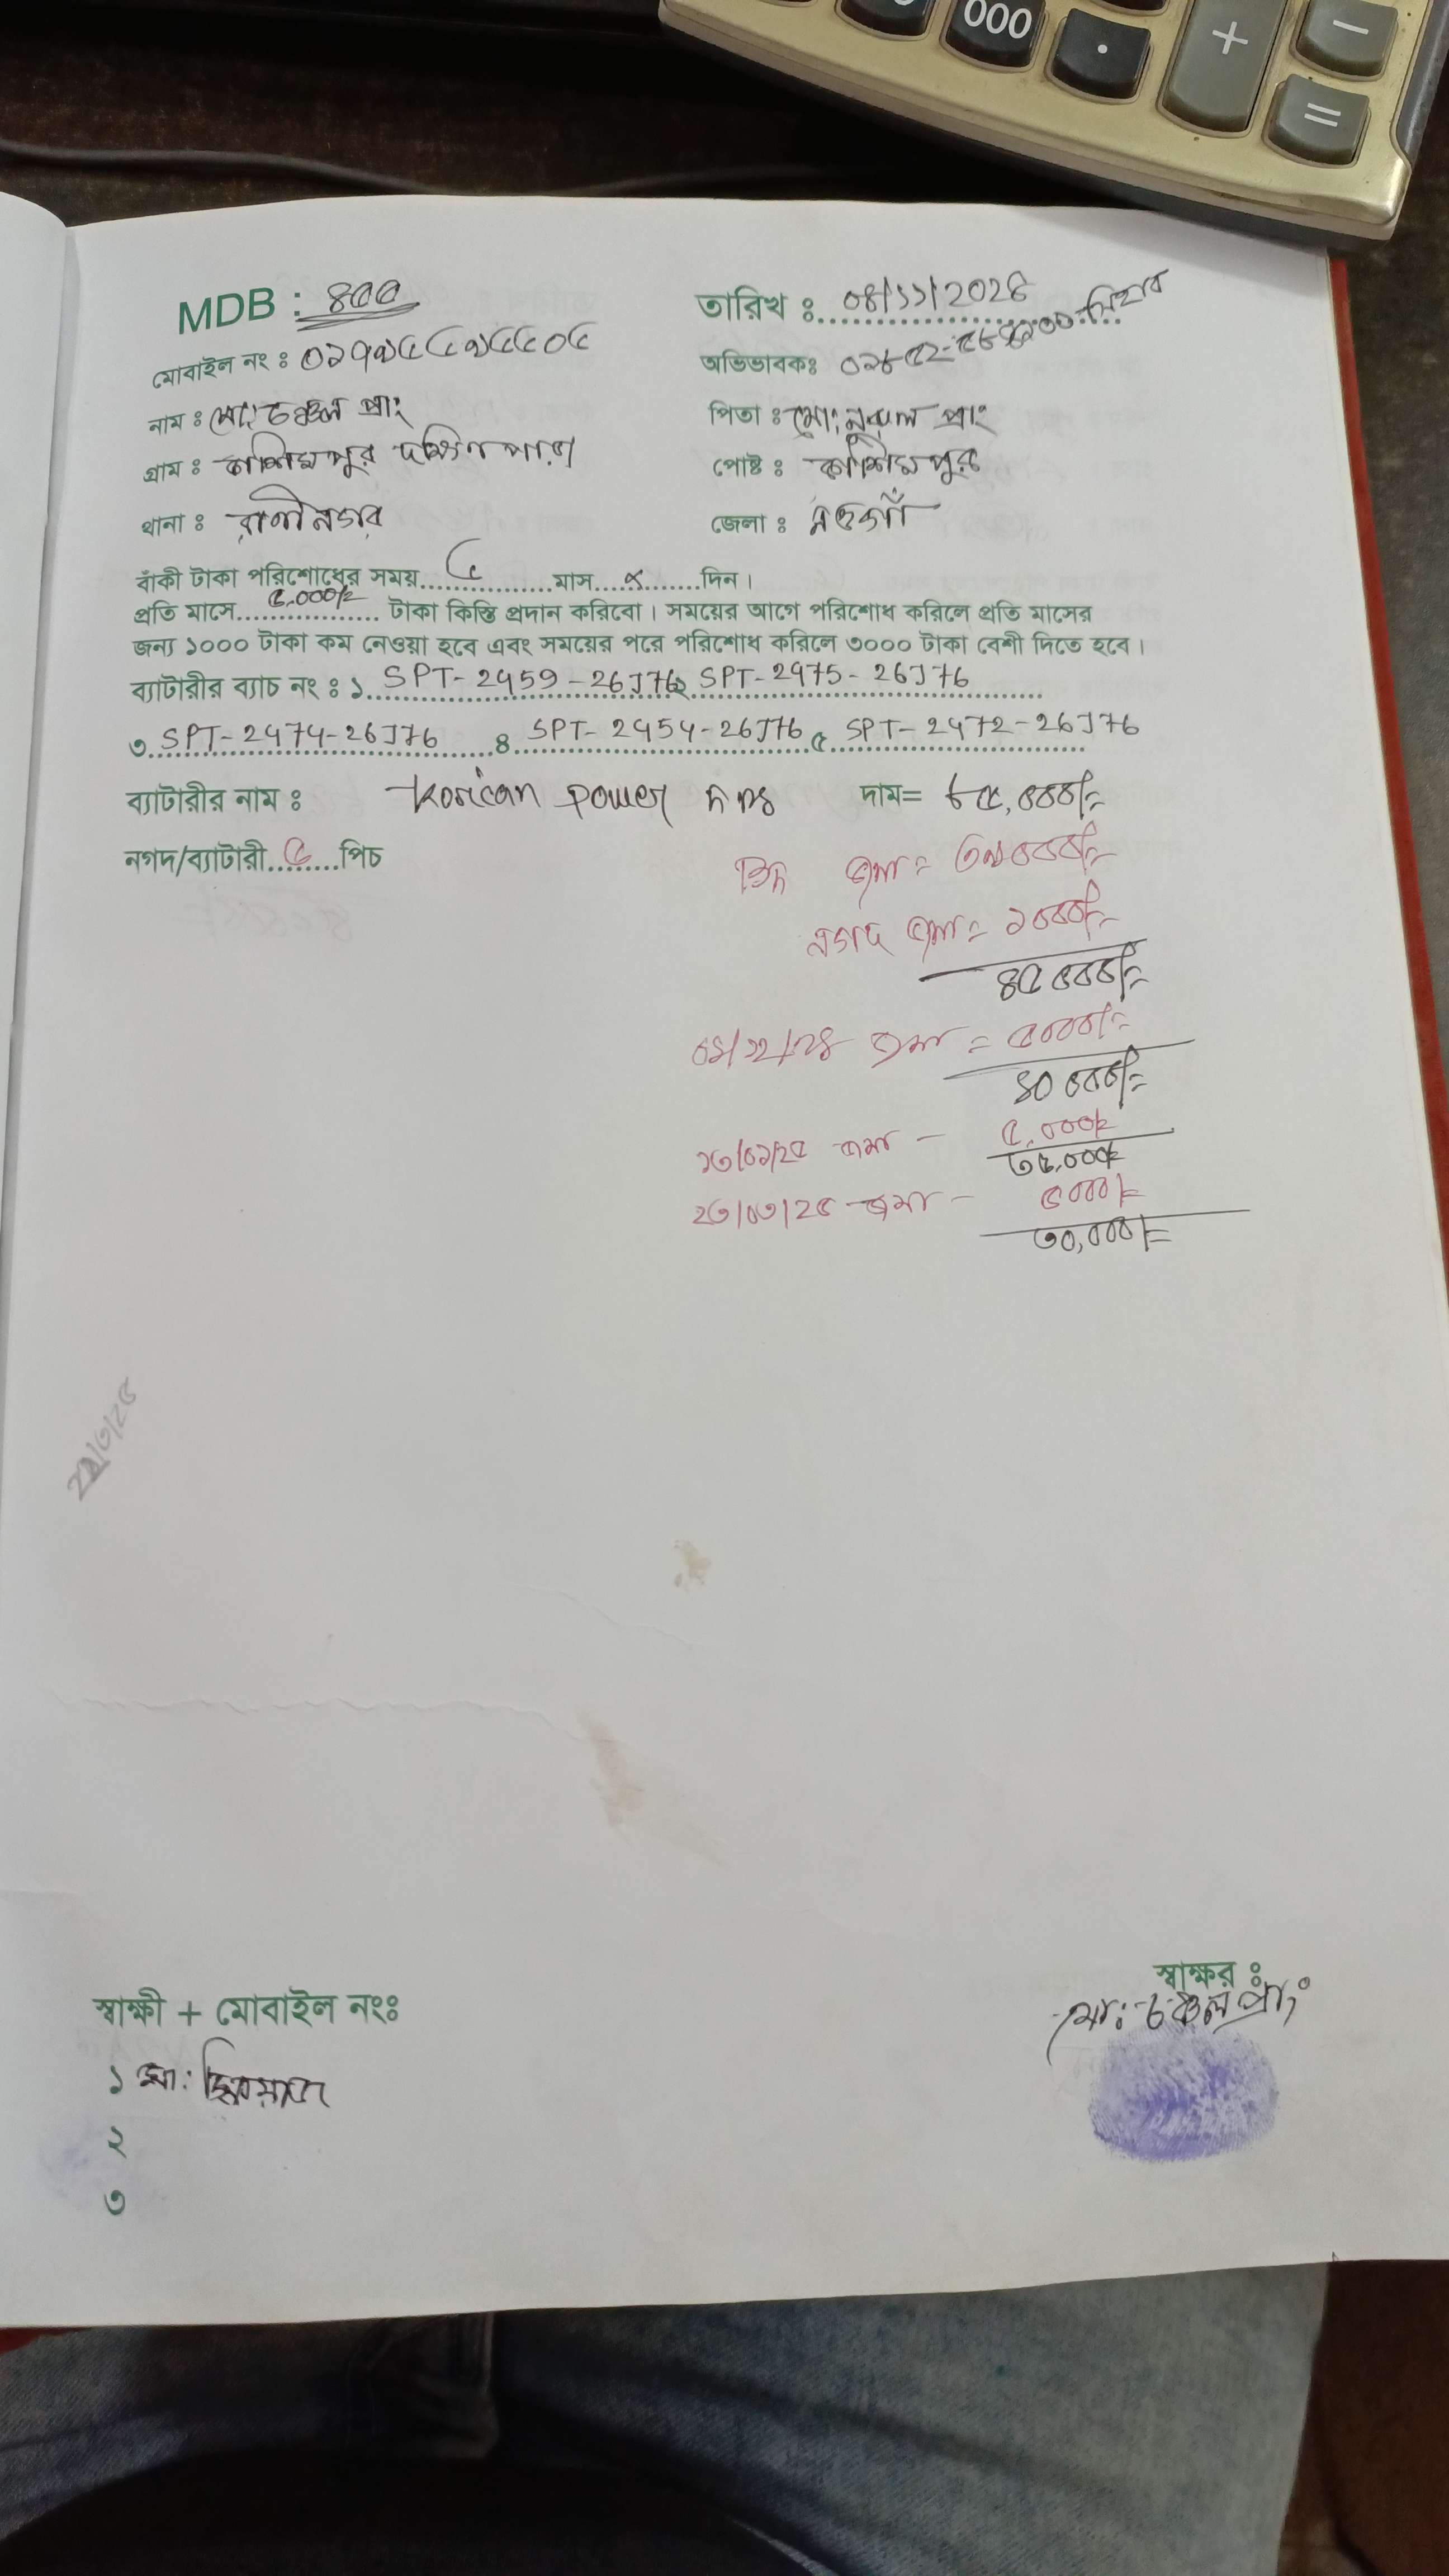 000 . + − =
MDB : ৪০০
তারিখ ঃ ০৪/১১/২০২৪
মোবাইল নং ঃ
অভিভাবকঃ
নাম ঃ মো: চঞ্চল প্রাং
পিতা ঃ মো: নুরুল প্রাং
গ্রাম ঃ কাশিমপুর দক্ষিন পাড়া
পোষ্ট ঃ কাশিমপুর
থানা ঃ রাণীনগর
জেলা ঃ নওগাঁ
বাঁকী টাকা পরিশোধের সময়....৫....মাস....×....দিন।
প্রতি মাসে....৫,০০০/=.... টাকা কিস্তি প্রদান করিবো। সময়ের আগে পরিশোধ করিলে প্রতি মাসের
জন্য ১০০০ টাকা কম নেওয়া হবে এবং সময়ের পরে পরিশোধ করিলে ৩০০০ টাকা বেশী দিতে হবে।
ব্যাটারীর ব্যাচ নং ঃ ১. SPT-2459-26J76 ২. SPT-2475-26J76
৩. SPT-2474-26J76 ৪. SPT-2454-26J76 ৫. SPT-2472-26J76
ব্যাটারীর নাম ঃ Korican Power দাম= ৮৫,০০০/=
নগদ/ব্যাটারী....৫....পিচ
জমা = ৩৯০০০/=
নগদ জমা = ১০০০/=
৪৫০০০/=
০৪/১২/২৪ জমা = ৫০০০/=
৪০০০০/=
১৩/০১/২৫ জমা - ৫,০০০/=
৩৫,০০০/=
২৩/০৩/২৫ জমা - ৫০০০/=
৩০,০০০/=
স্বাক্ষর ঃ
মো: চঞ্চল প্রাং
স্বাক্ষী + মোবাইল নংঃ
১ মো:
২
৩